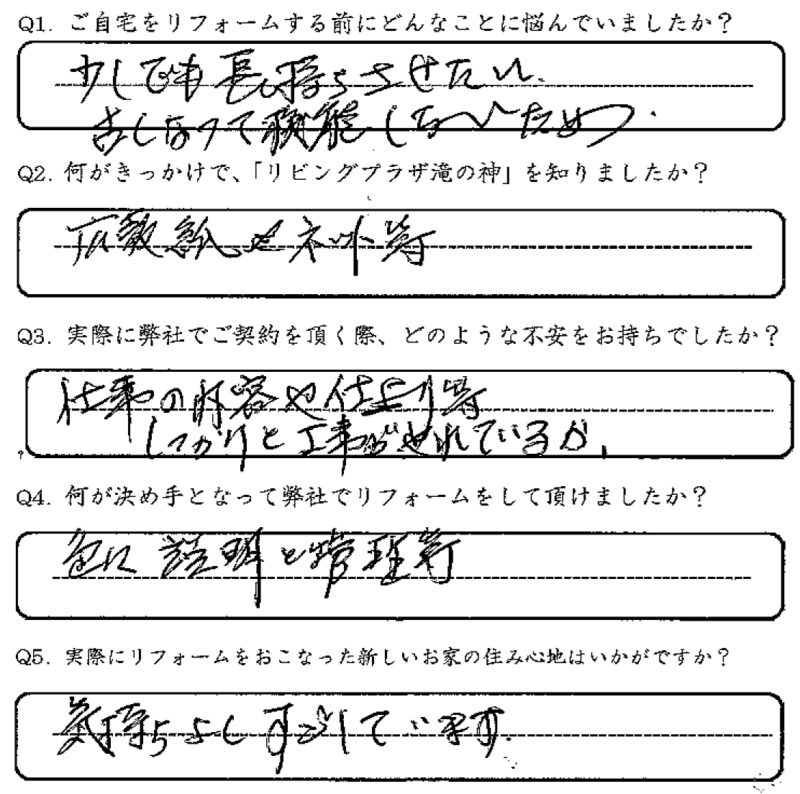 Q1. ご自宅をリフォームする前にどんなことに悩んでいましたか?
少しでも長持ちさせたい.
古しなって機能しないため.
Q2. 何がきっかけで、「リビングプラザ滝の神」を知りましたか?
広報紙やネット等
Q3. 実際に弊社でご契約を頂く際、どのような不安をお持ちでしたか?
仕事の内容や仕上り等
しっかりと工事がされているか,
Q4. 何が決め手となって弊社でリフォームをして頂けましたか?
説明と管理等
Q5. 実際にリフォームをおこなった新しいお家の住み心地はいかがですか?
気持ちよしすごしています.